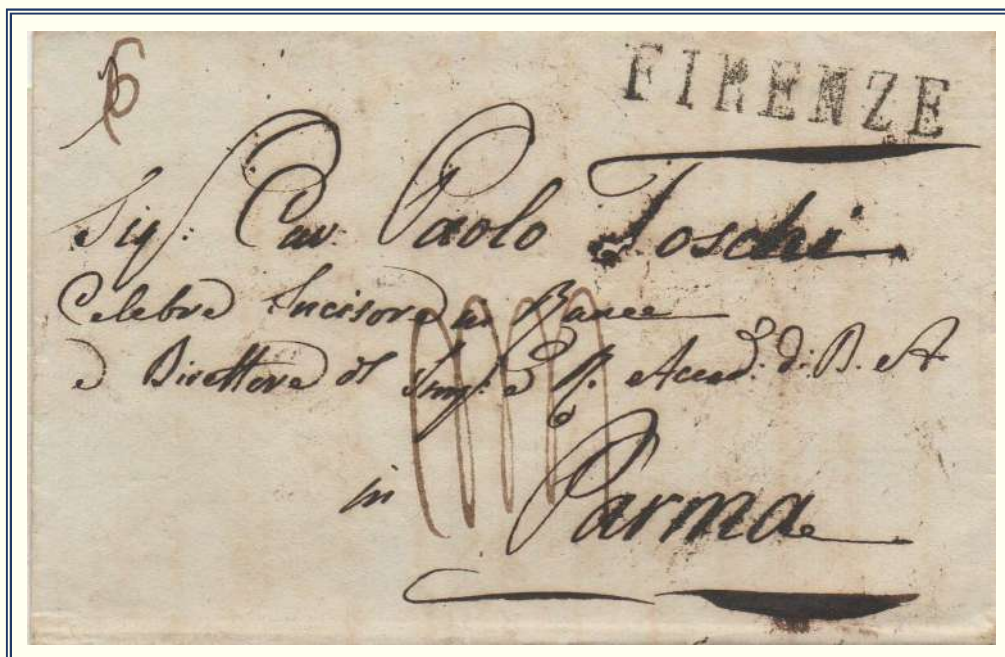 6
FIRENZE
Sigr: Cav: Paolo Toschi
Celebre Incisore in Rame
e Direttore di Imp: e R. Accad: di B. A.
in Parma